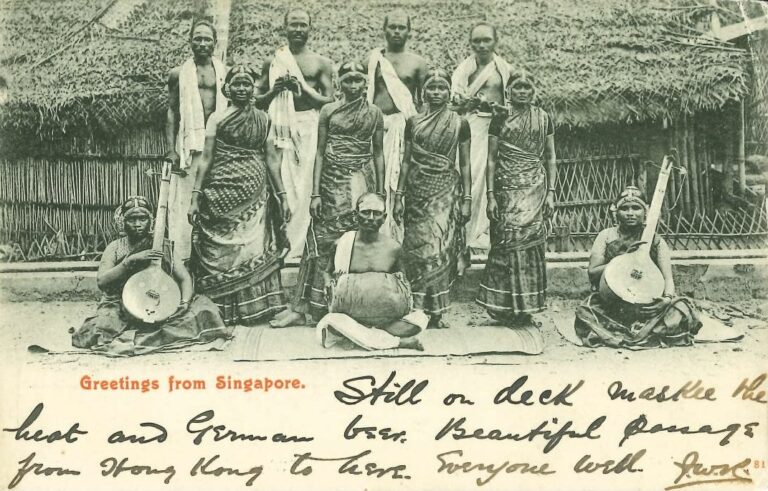 Greetings from Singapore.
Still on deck maskee the
heat and German beer. Beautiful passage
from Hong Kong to here. Everyone well.
81